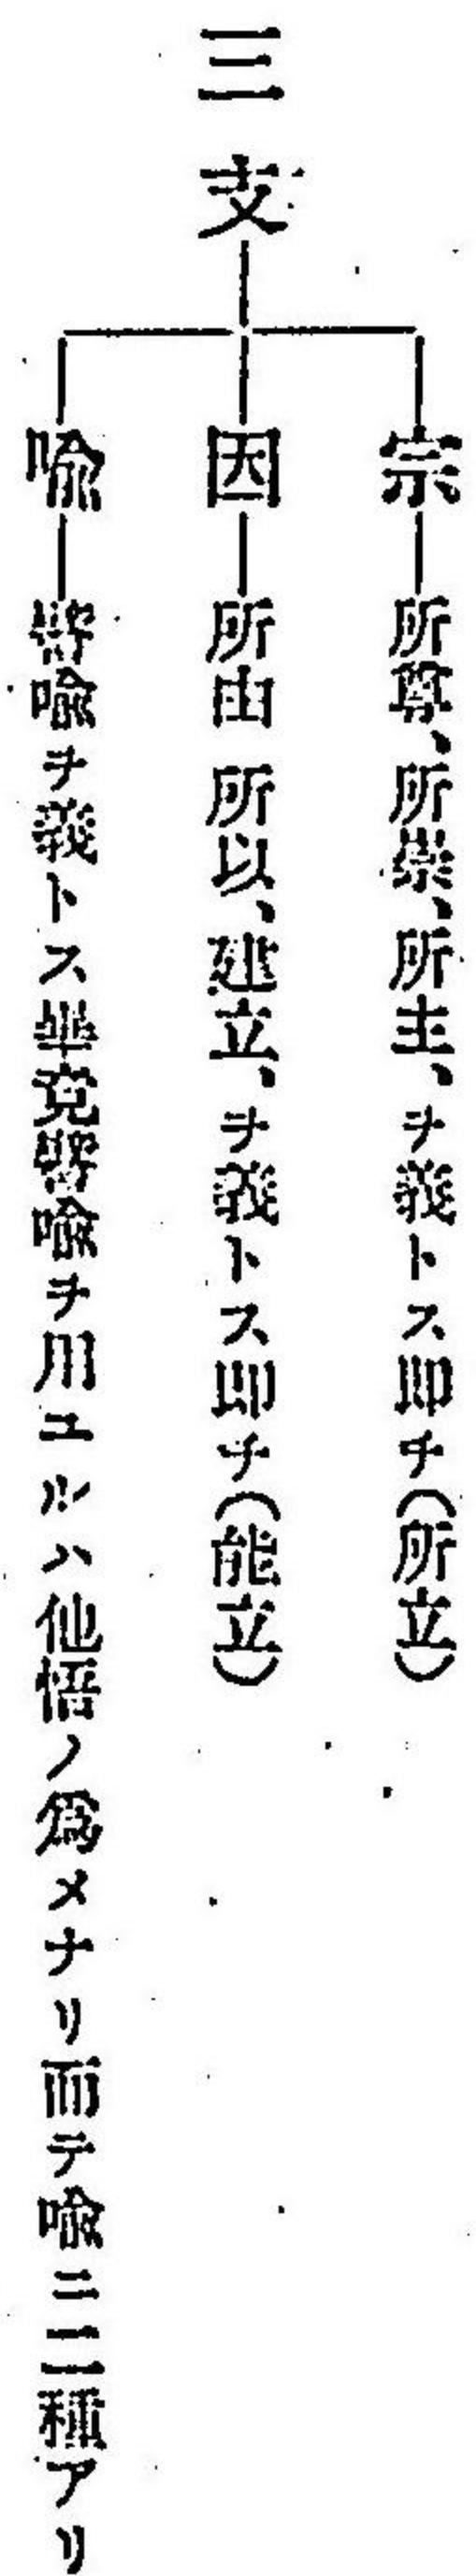 三支
宗 所尊、所崇、所主、ヲ義トス即チ(所立)
因 所由 所以、建立、ヲ義トス即チ(能立)
喩 譬喩ヲ義トス畢竟譬喩ヲ用ユルハ他悟ノ爲メナリ而テ喩ニ二種アリ